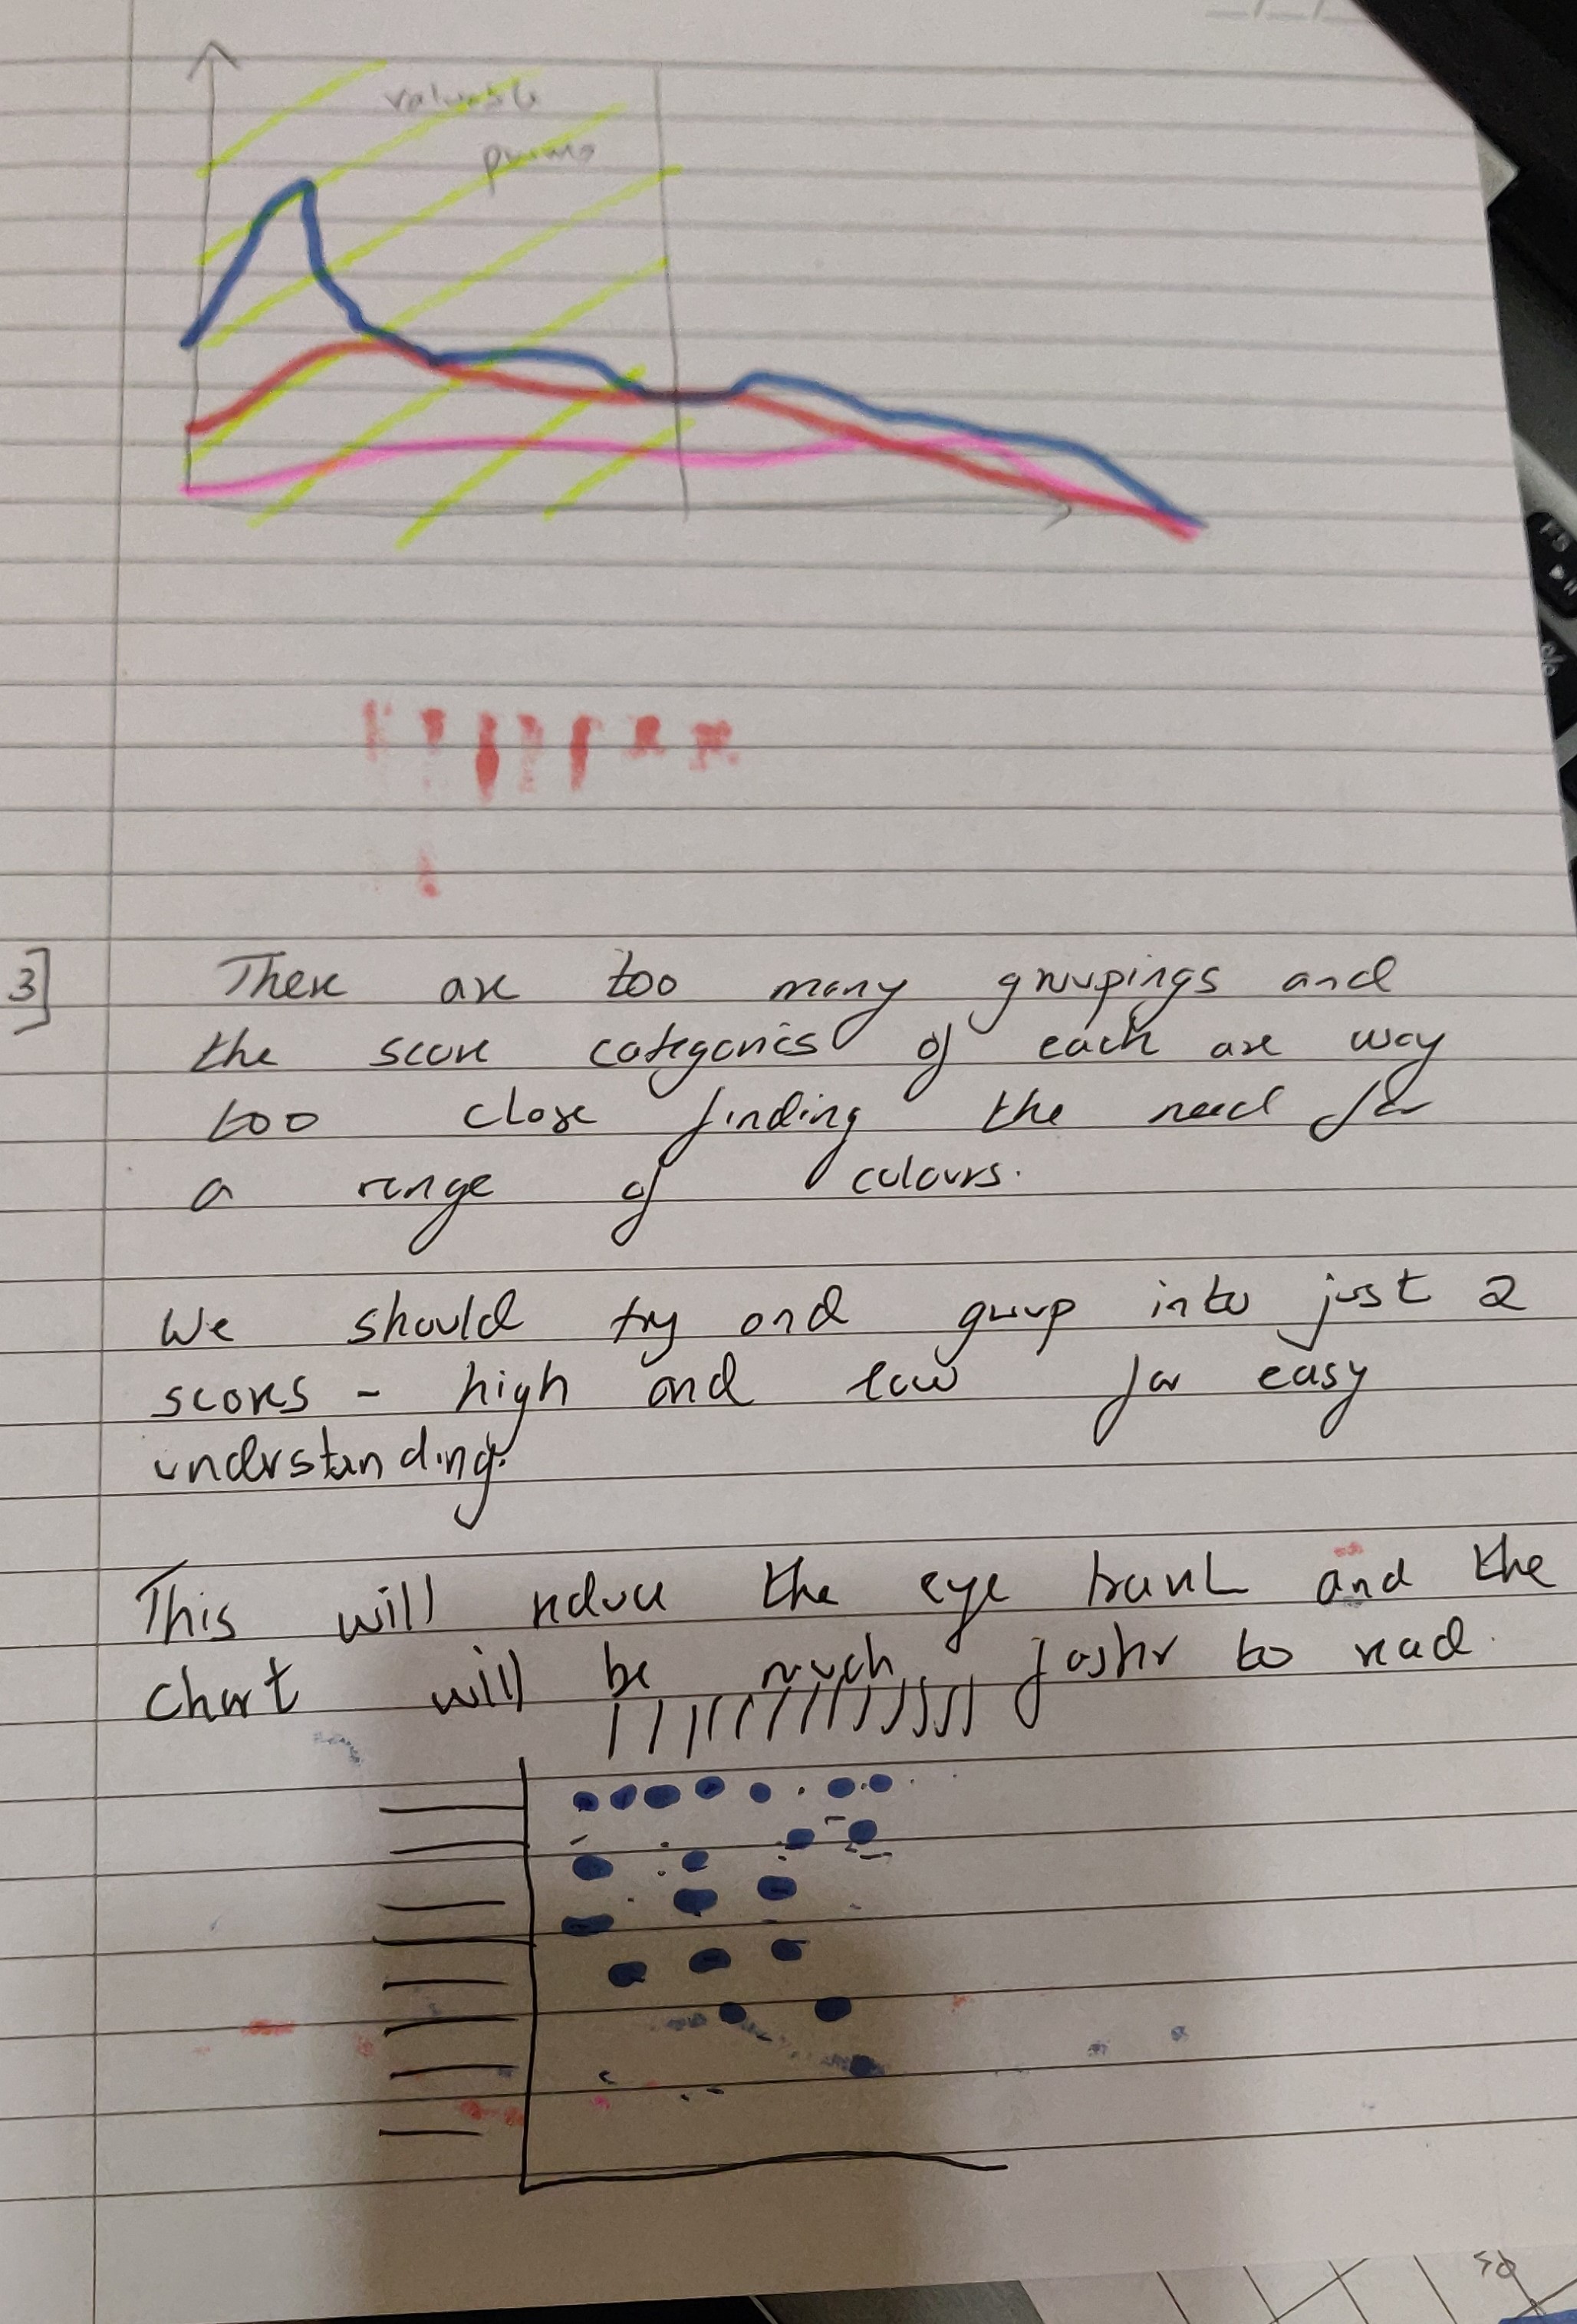 valuable
prime
3]
There are too many groupings and
the score categories of each are way
too close finding the need for
a range of colours.
We should try and group into just 2
scores - high and low for easy
understanding.
This will reduce the eye travel and the
chart will be much faster to read.